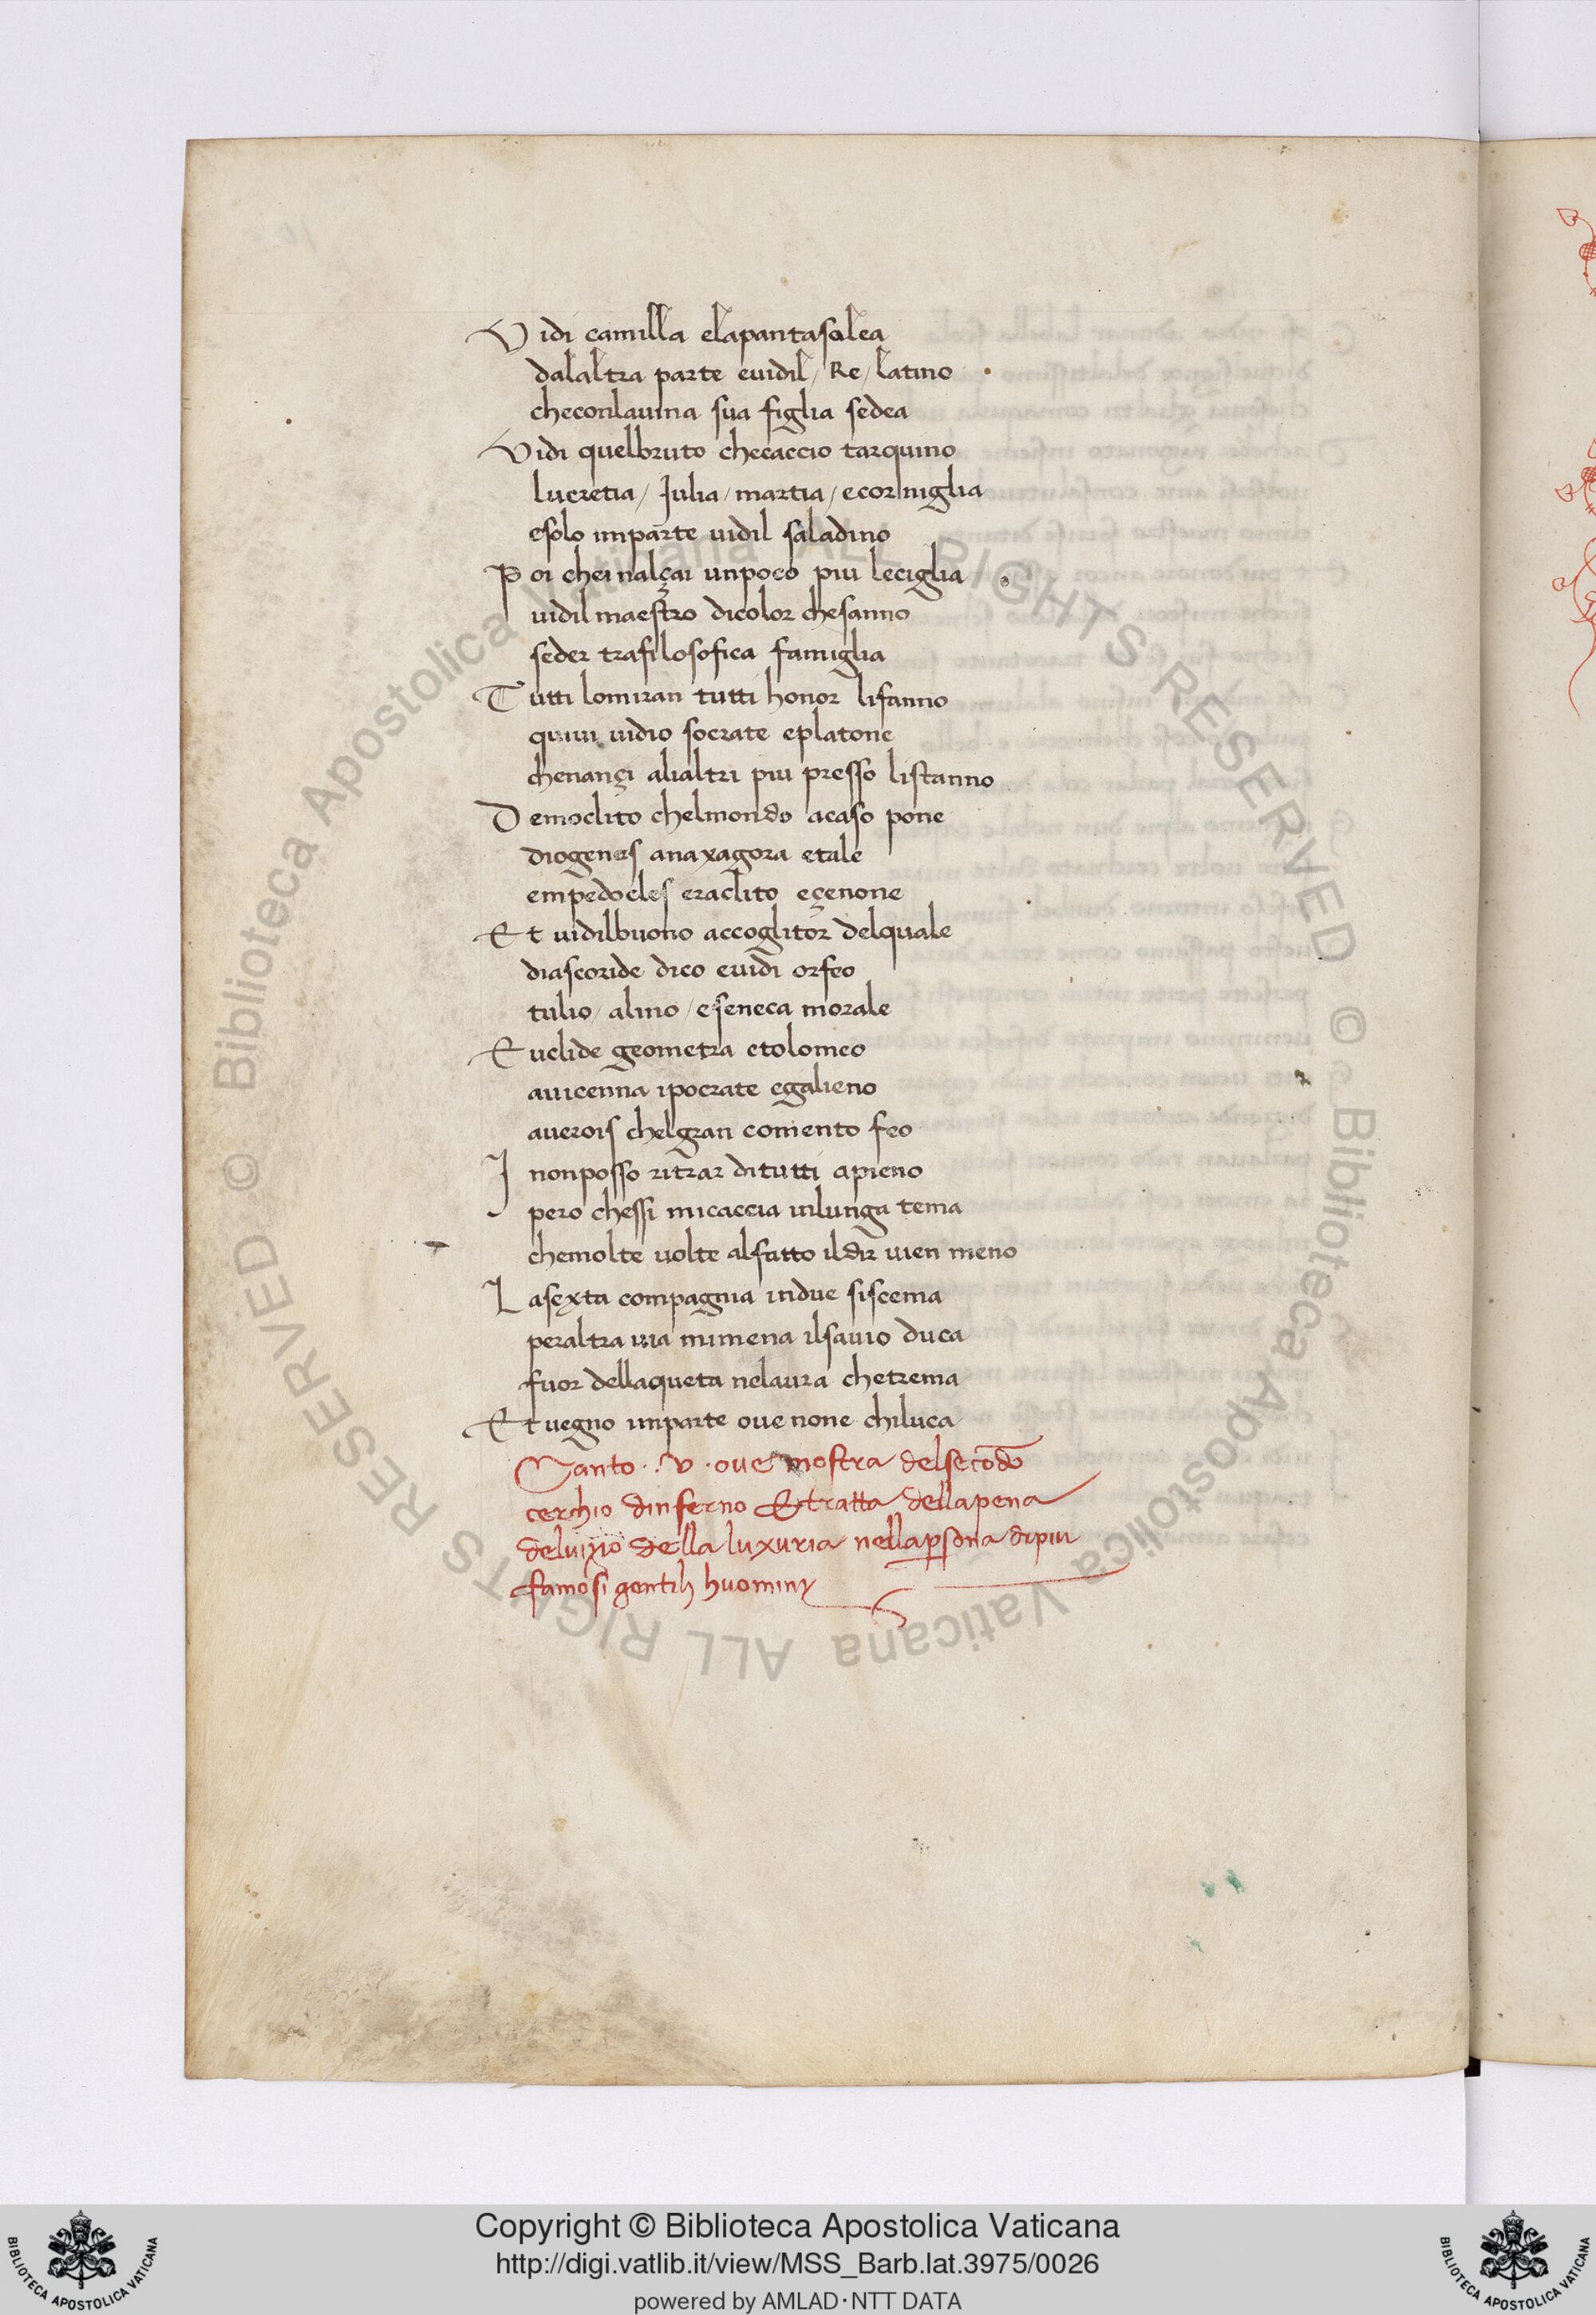 Vidi camilla elapantasalea
dalaltra parte euidil / Re / latino
checonlauina sua figlia sedea
Vidi quelbruto checaccio tarquino
lucretia / Julia / martia / ecorniglia
esolo imparte uidil saladino
Poi chei nalçai unpoco piu leciglia
uidil maestro dicolor chesanno
seder trafilosofica famiglia
Tutti lomiran tutti honor lifanno
quiui uidio socrate eplatone
chenançi alialtri piu presso listanno
Democlito chelmondo acaso pone
diogenes anaxagora etale
empedocles eraclito eçenone
Et uidilbuono accoglitor delquale
diascoride dico euidi orfeo
tulio / alino / eseneca morale
Euclide geometra etolomeo
auicenna ipocrate egalieno
auerois chelgran comento feo
I nonposso ritrar ditutti apieno
pero chessi micaccia inlunga tema
chemolte uolte alfatto ildir uien meno
Lasexta compagnia indue siscema
peraltra uia mimena ilsauio duca
fuor dellaqueta nelaura chetrema
Et uegno imparte oue none chiluca
Canto .v. oue mostra delsecōdo
cerchio dinferno Etratta dellapena
deluizio della luxuria nellapsona dipiu
famosi gentili huominy
© Biblioteca Apostolica Vaticana ALL RIGHTS RESERVED © Biblioteca Apostolica Vaticana ALL RIGHTS RESERVED
BIBLIOTECA APOSTOLICA VATICANA
Copyright © Biblioteca Apostolica Vaticana
http://digi.vatlib.it/view/MSS_Barb.lat.3975/0026
powered by AMLAD·NTT DATA
BIBLIOTECA APOSTOLICA VATICANA